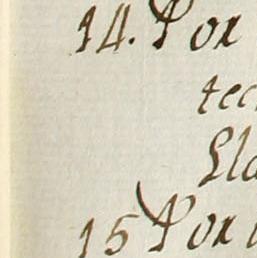 14. Por
tec
Lla
15 Por